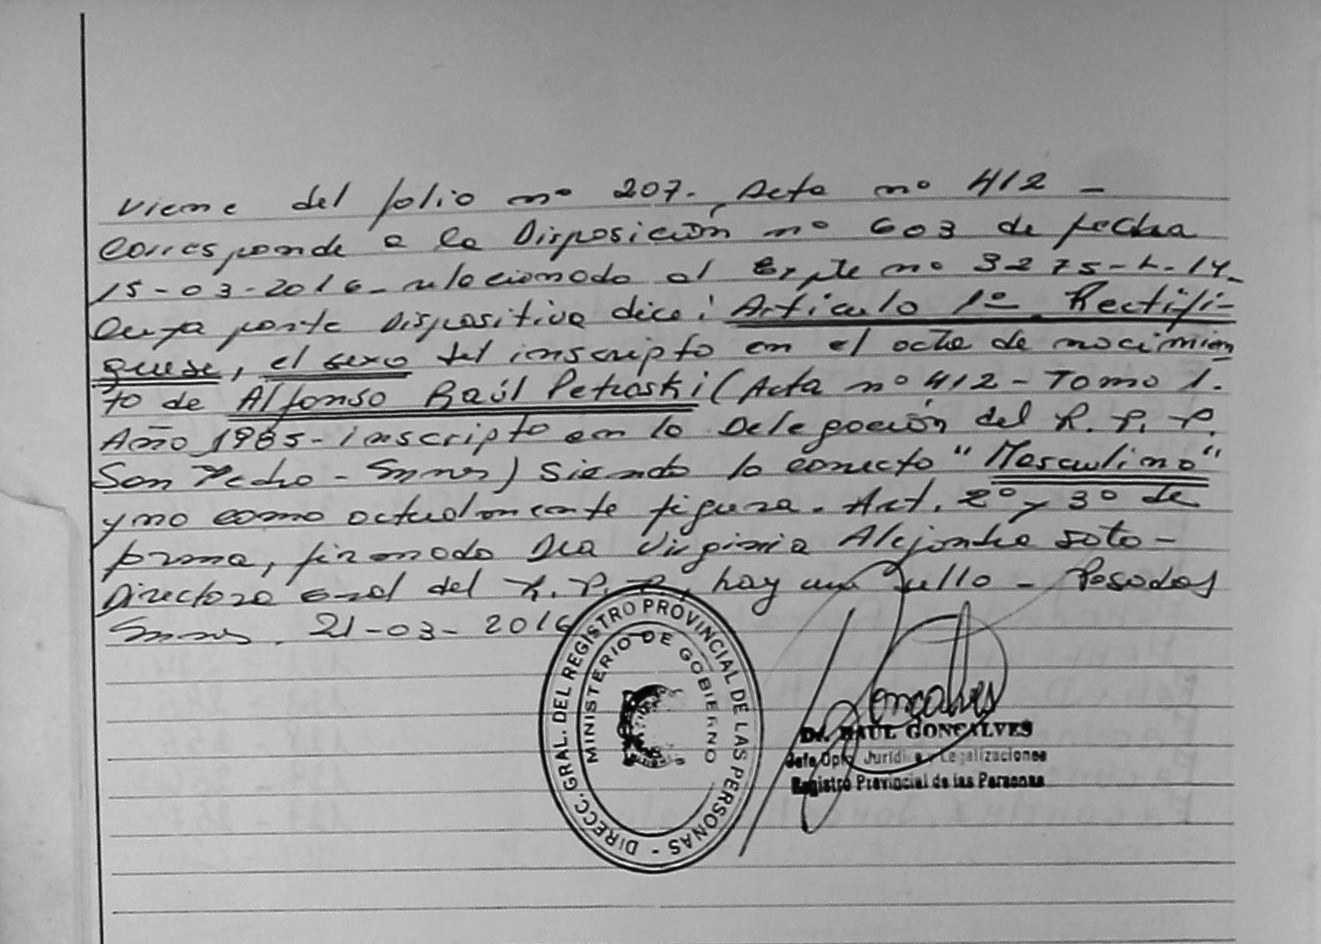 Viene del folio nº 207. Acta nº 412 -
Corresponde a la Disposición nº 603 de fecha
15-03-2016 - relacionado al Expte nº 3275-L-14-
Cuya parte Dispositiva dice: Artículo 1º Rectifí-
quese, el sexo del inscripto en el acta de nacimien
to de Alfonso Raúl Petroski (Acta nº 412 - Tomo 1.
Año 1985 - inscripto en la Delegación del R. P. P.
San Pedro - Mnes) Siendo lo correcto "Masculino"
y no como actualmente figura. Art. 2º y 3º de
forma, firmado Dra Virginia Alejandra Soto -
Directora Gral del R. P. P., hay un sello - Posadas
Mnes. 21-03-2016
DIRECC. GRAL. DEL REGISTRO PROVINCIAL DE LAS PERSONAS -
MINISTERIO DE GOBIERNO
Goncalves
Dr. RAUL GONCALVES
Jefe Dpto. Jurídico y Legalizaciones
Registro Provincial de las Personas